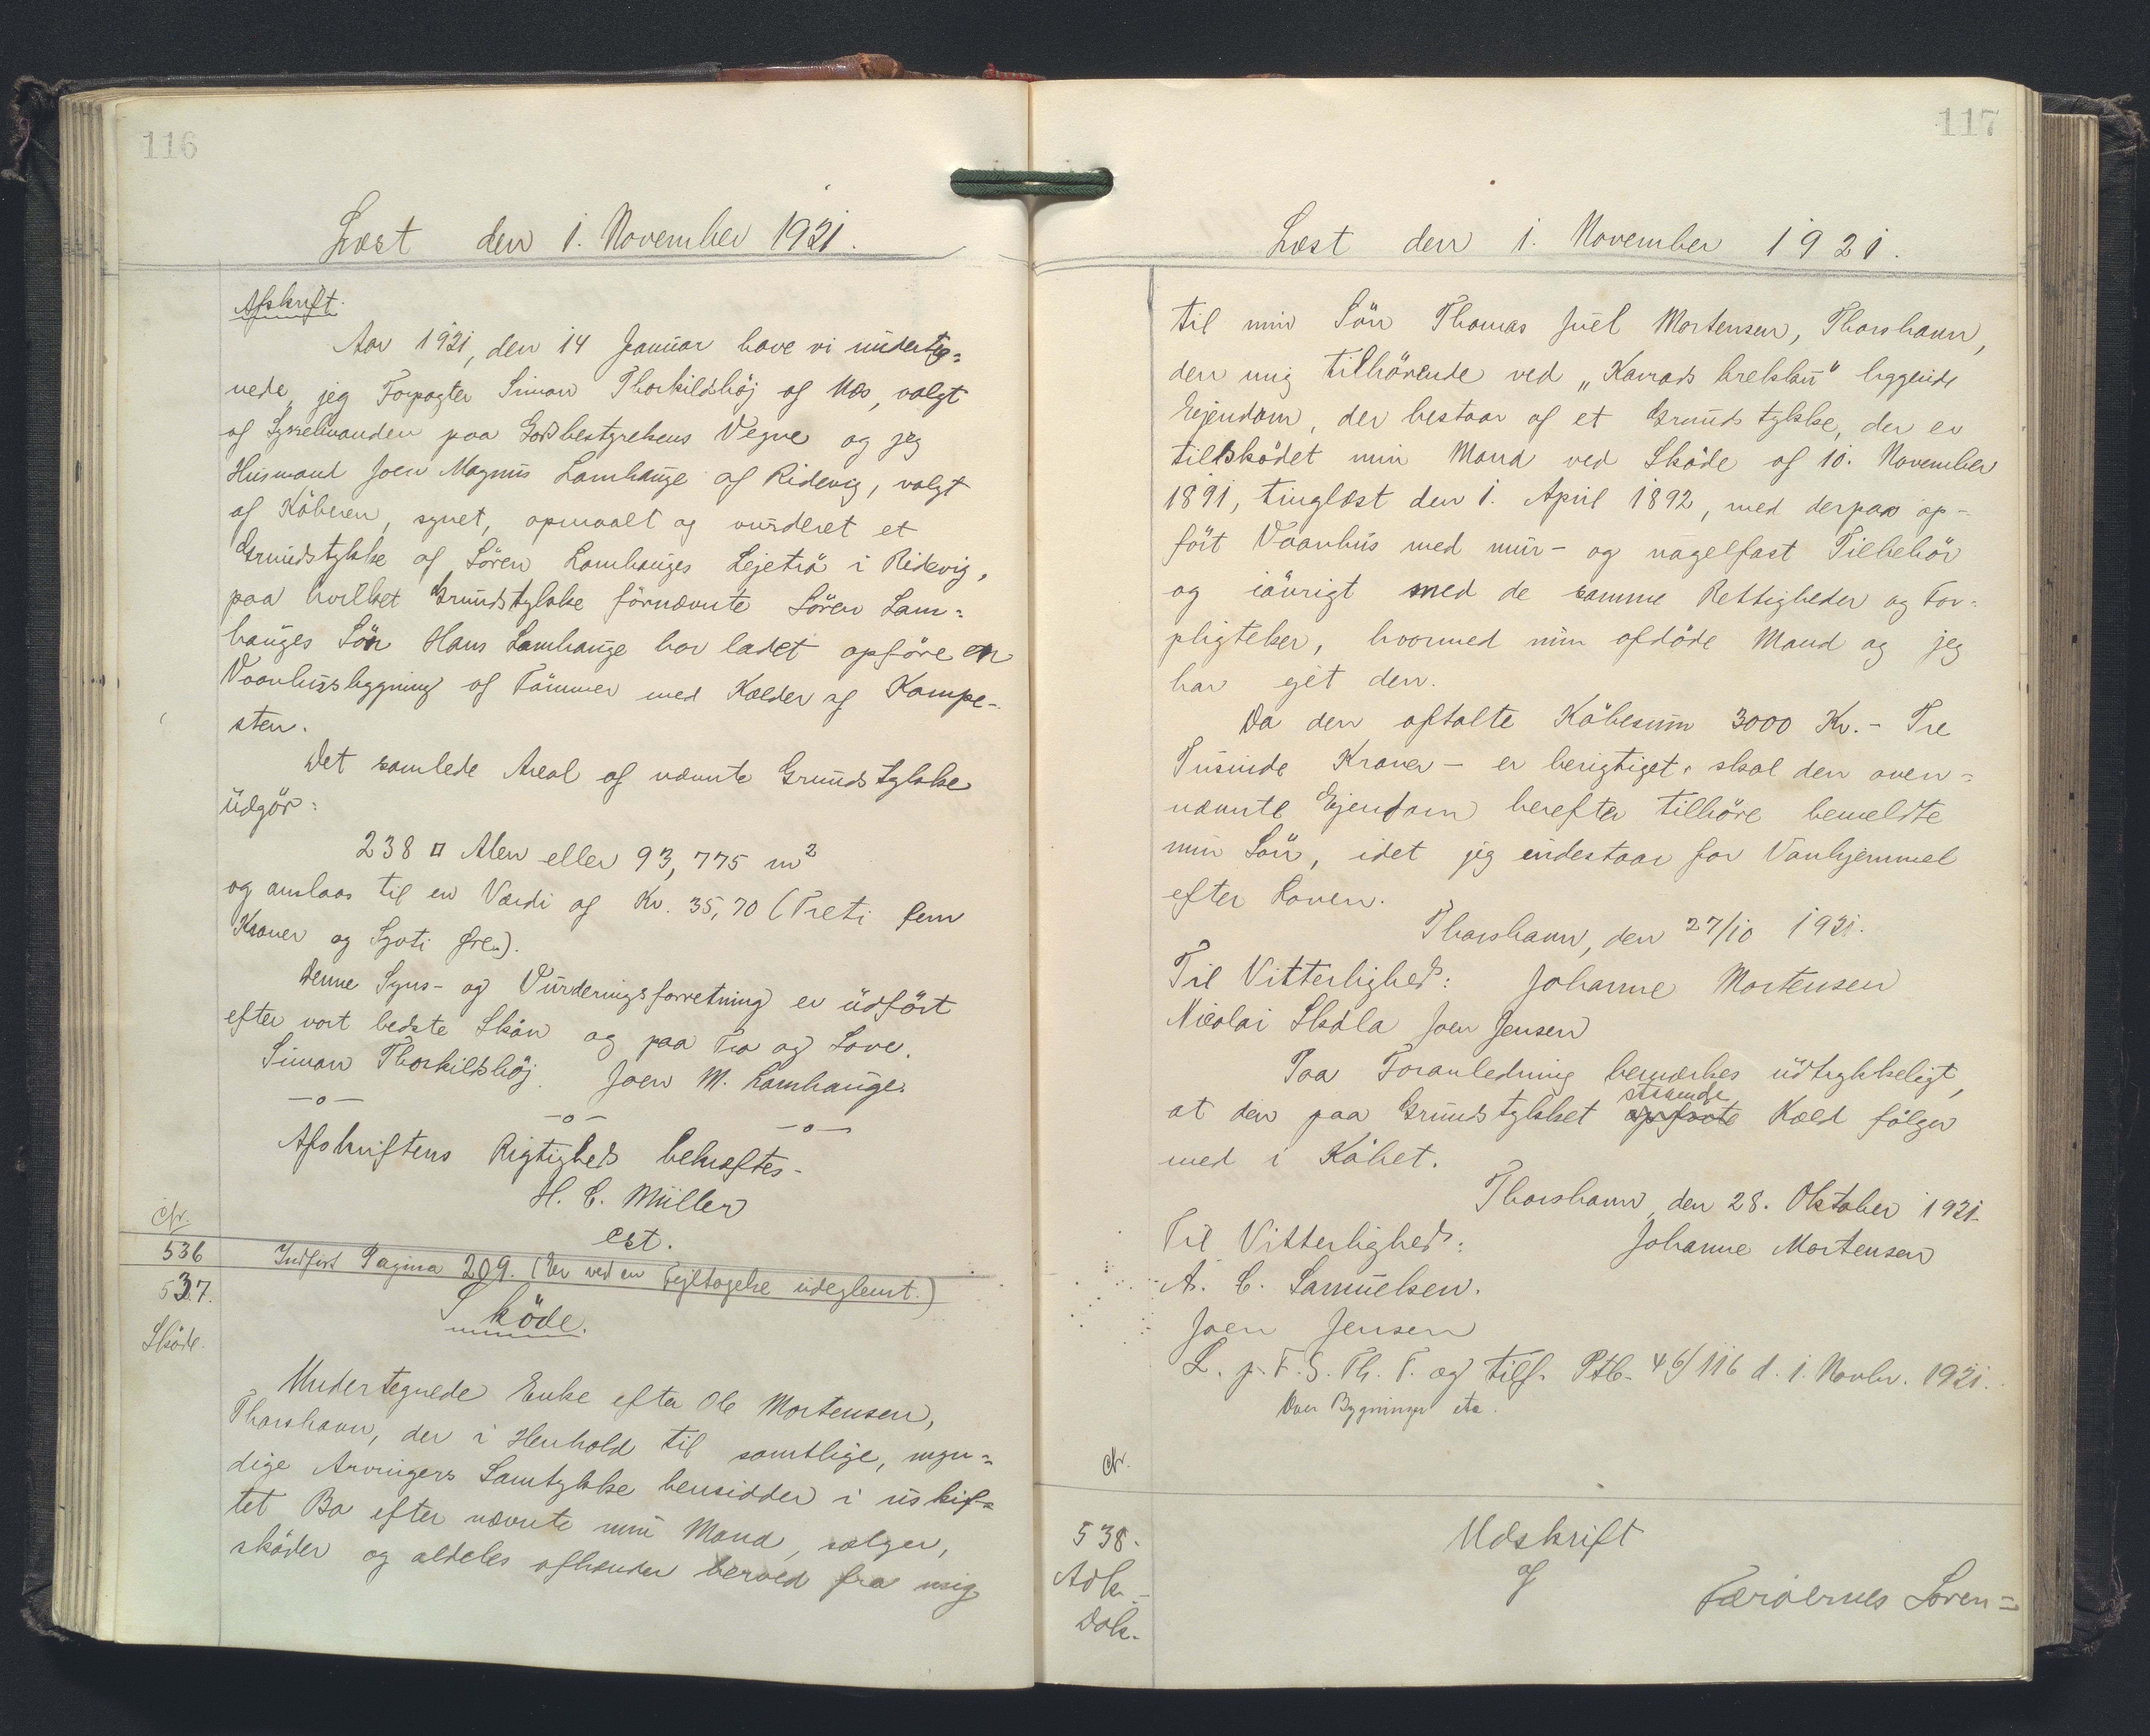 116
Læst den 1. November 1921.
Afskrift.
Aar 1921, den 14 Januar have vi underteg=
nede, jeg Forpagter Simon Thorkildshöj af Næs, valgt
af Sysselmanden paa Godsbestyrelsens Vegne og jeg
Husmand Joen Magnus Lamhauge af Ridevig, valgt
af Köberen, synet, opmaalt og vurderet et
Grundstykke af Sören Lamhauges Lejeträ i Ridevig,
paa hvilket Grundstykke förnævnte Sören Lam=
hauges Sön Hans Lamhauge har ladet opföre en
Vaanhusbygning af Tömmer med Kælder af Kampe-
sten.
Det samlede Areal af nævnte Grundstykke
udgör:
238 □ Alen eller 93,775 m2
og anslaas til en Værdi af Kr. 35,70 (Treti fem
Kroner og Syvti Øre.).
Denne Syns- og Vurderingsforretning er udfört
efter vort bedste Skön og paa Tro og Love.
Simon Thorkildshöj. Joen M. Lamhauge.
—o— —o— —o—
Afskriftens Rigtighed bekræftes-
H. C. Müller
cst.
Nr.
536 Indfört Pagina 209. (Er ved en Fejltagelse udeglemt.)
537.
Sköde.
Sköde.
Undertegnede Enke efter Ole Mortensen,
Thorshavn, der i Henhold til samtlige, myn=
dige Arvingers Samtykke hensidder i uskif=
tet Bo efter nævnte min Mand, sælger,
sköder og aldeles afhænder herved fra mig
117
Læst den 1. November 1921.
til min Sön Thomas Juel Mortensen, Thorshavn,
den mig tilhörende ved „Kavrads brekku" liggende
Ejendom, der bestaar af et Grundstykke, der er
tilsködet min Mand ved Sköde af 10. November
1891, tinglæst den 1. April 1892, med derpaa op-
fört Vaanhus med mur- og nagelfast Tilbehör
og iövrigt med de samme Rettigheder og For-
pligtelser, hvormed min afdöde Mand og jeg
har ejet den.
Da den aftalte Köbesum 3000 Kr. - Tre
Tusinde Kroner - er berigtiget, skal den oven=
nævnte Ejendom herefter tilhöre bemeldte
min Sön, idet jeg indestaar for Vanhjemmel
efter Loven.
Thorshavn, den 27/10 1921.
Til Vitterlighed: Johanne Mortensen
Nicolai Skåla Joen Jensen
Paa Foranledning bemærkes udtrykkeligt,
staaende
at den paa Grundstykket opförte Kæld fölger
med i Köbet.
Thorshavn, den 28. Oktober 1921.
Til Vitterlighed: Johanne Mortensen
A. C. Samuelsen.
Joen Jensen
L. p. F. S. Th. T. og tilf. Ptb. 46/116 d. 1. Novbr. 1921.
Over Bygninger etc.
Nr.
538.
Adk.-
Dok.
Udskrift
af
Færöernes Loven=